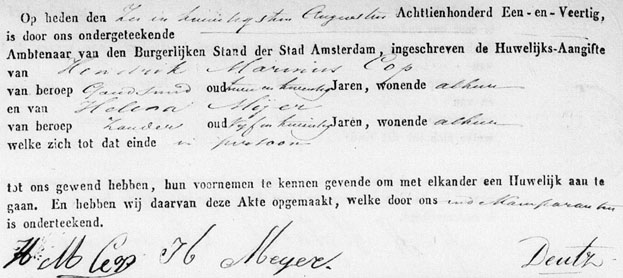 Op heden den Zes en twintigsten Augustus Achttienhonderd Een-en-Veertig,
is door ons ondergeteekende
Ambtenaar van den Burgerlijken Stand der Stad Amsterdam, ingeschreven de Huwelijks-Aangifte
van Hendrik Marinus Cop
van beroep Goudsmid oud twintig Jaren, wonende alhier
en van Helena Mijer
van beroep Zonder oud Vijf en twintig Jaren, wonende alhier
welke zich tot dat einde in persoon
tot ons gewend hebben, hun voornemen te kennen gevende om met elkander een Huwelijk aan te
gaan. En hebben wij daarvan deze Akte opgemaakt, welke door ons en de Comparanten
is onderteekend.
H M Cop H Meyer. Deutz